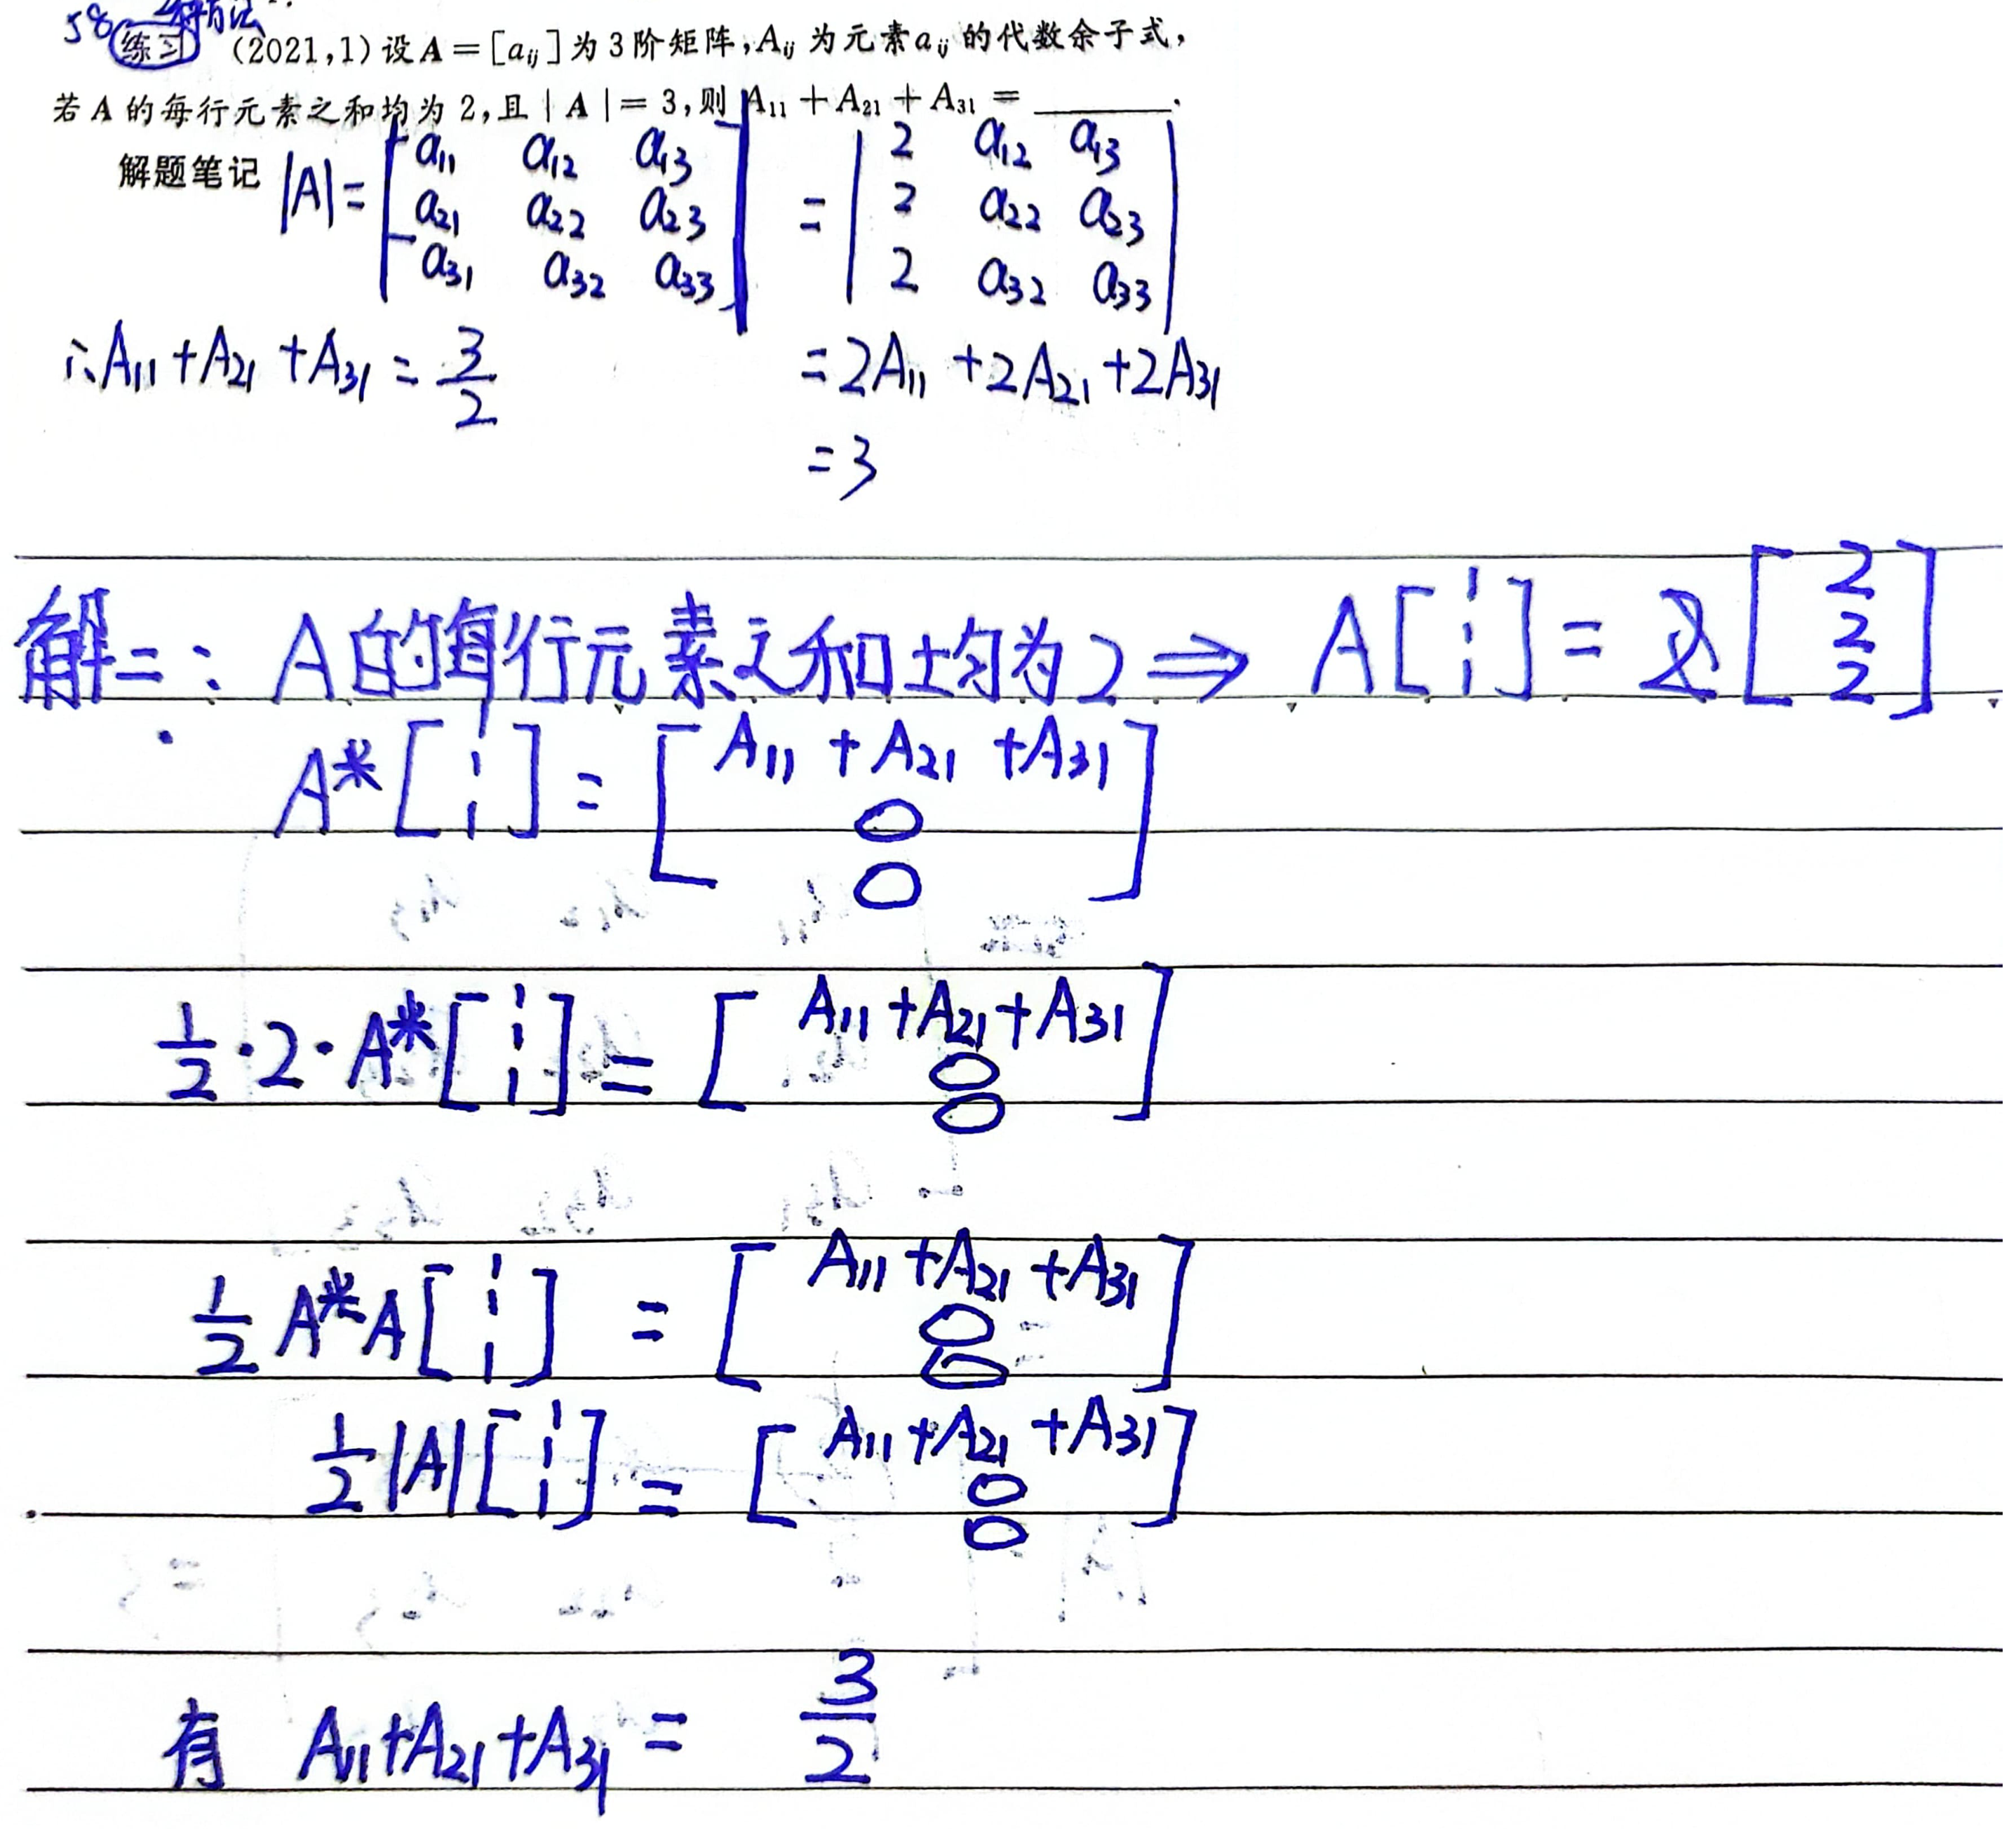 58 练习 (2021,1)设A=[aᵢⱼ]为3阶矩阵,Aᵢⱼ为元素aᵢⱼ的代数余子式,
若A的每行元素之和均为2,且|A|=3,则A₁₁+A₂₁+A₃₁=______.
解题笔记 |A|= | a₁₁ a₁₂ a₁₃ | = | 2 a₁₂ a₁₃ |
| a₂₁ a₂₂ a₂₃ | | 2 a₂₂ a₂₃ |
| a₃₁ a₃₂ a₃₃ | | 2 a₃₂ a₃₃ |
∴A₁₁+A₂₁+A₃₁=3/2 =2A₁₁+2A₂₁+2A₃₁
=3
解二: A的每行元素之和均为2 ⇒ A[1 1 1] = [2 2 2]
A*[1 1 1] = [A₁₁+A₂₁+A₃₁ 0 0]
1/2·2·A*[1 1 1] = [A₁₁+A₂₁+A₃₁ 0 0]
1/2 A*A[1 1 1] = [A₁₁+A₂₁+A₃₁ 0 0]
1/2|A|[1 1 1] = [A₁₁+A₂₁+A₃₁ 0 0]
有 A₁₁+A₂₁+A₃₁ = 3/2